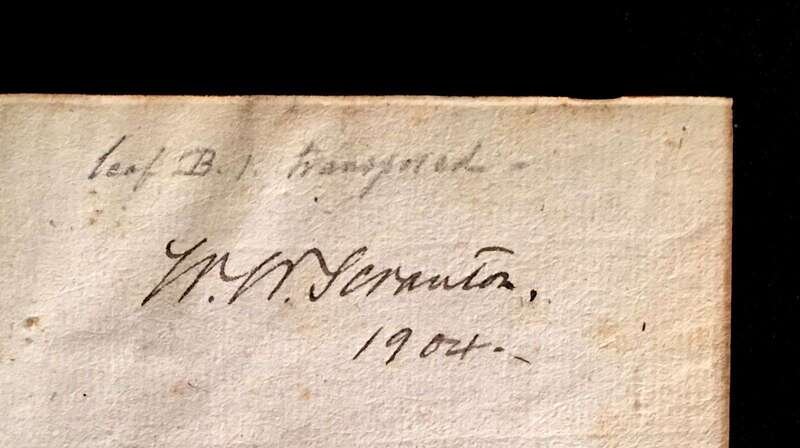 leaf B. 1. transposed -
W. W. Scranton.
1904.-